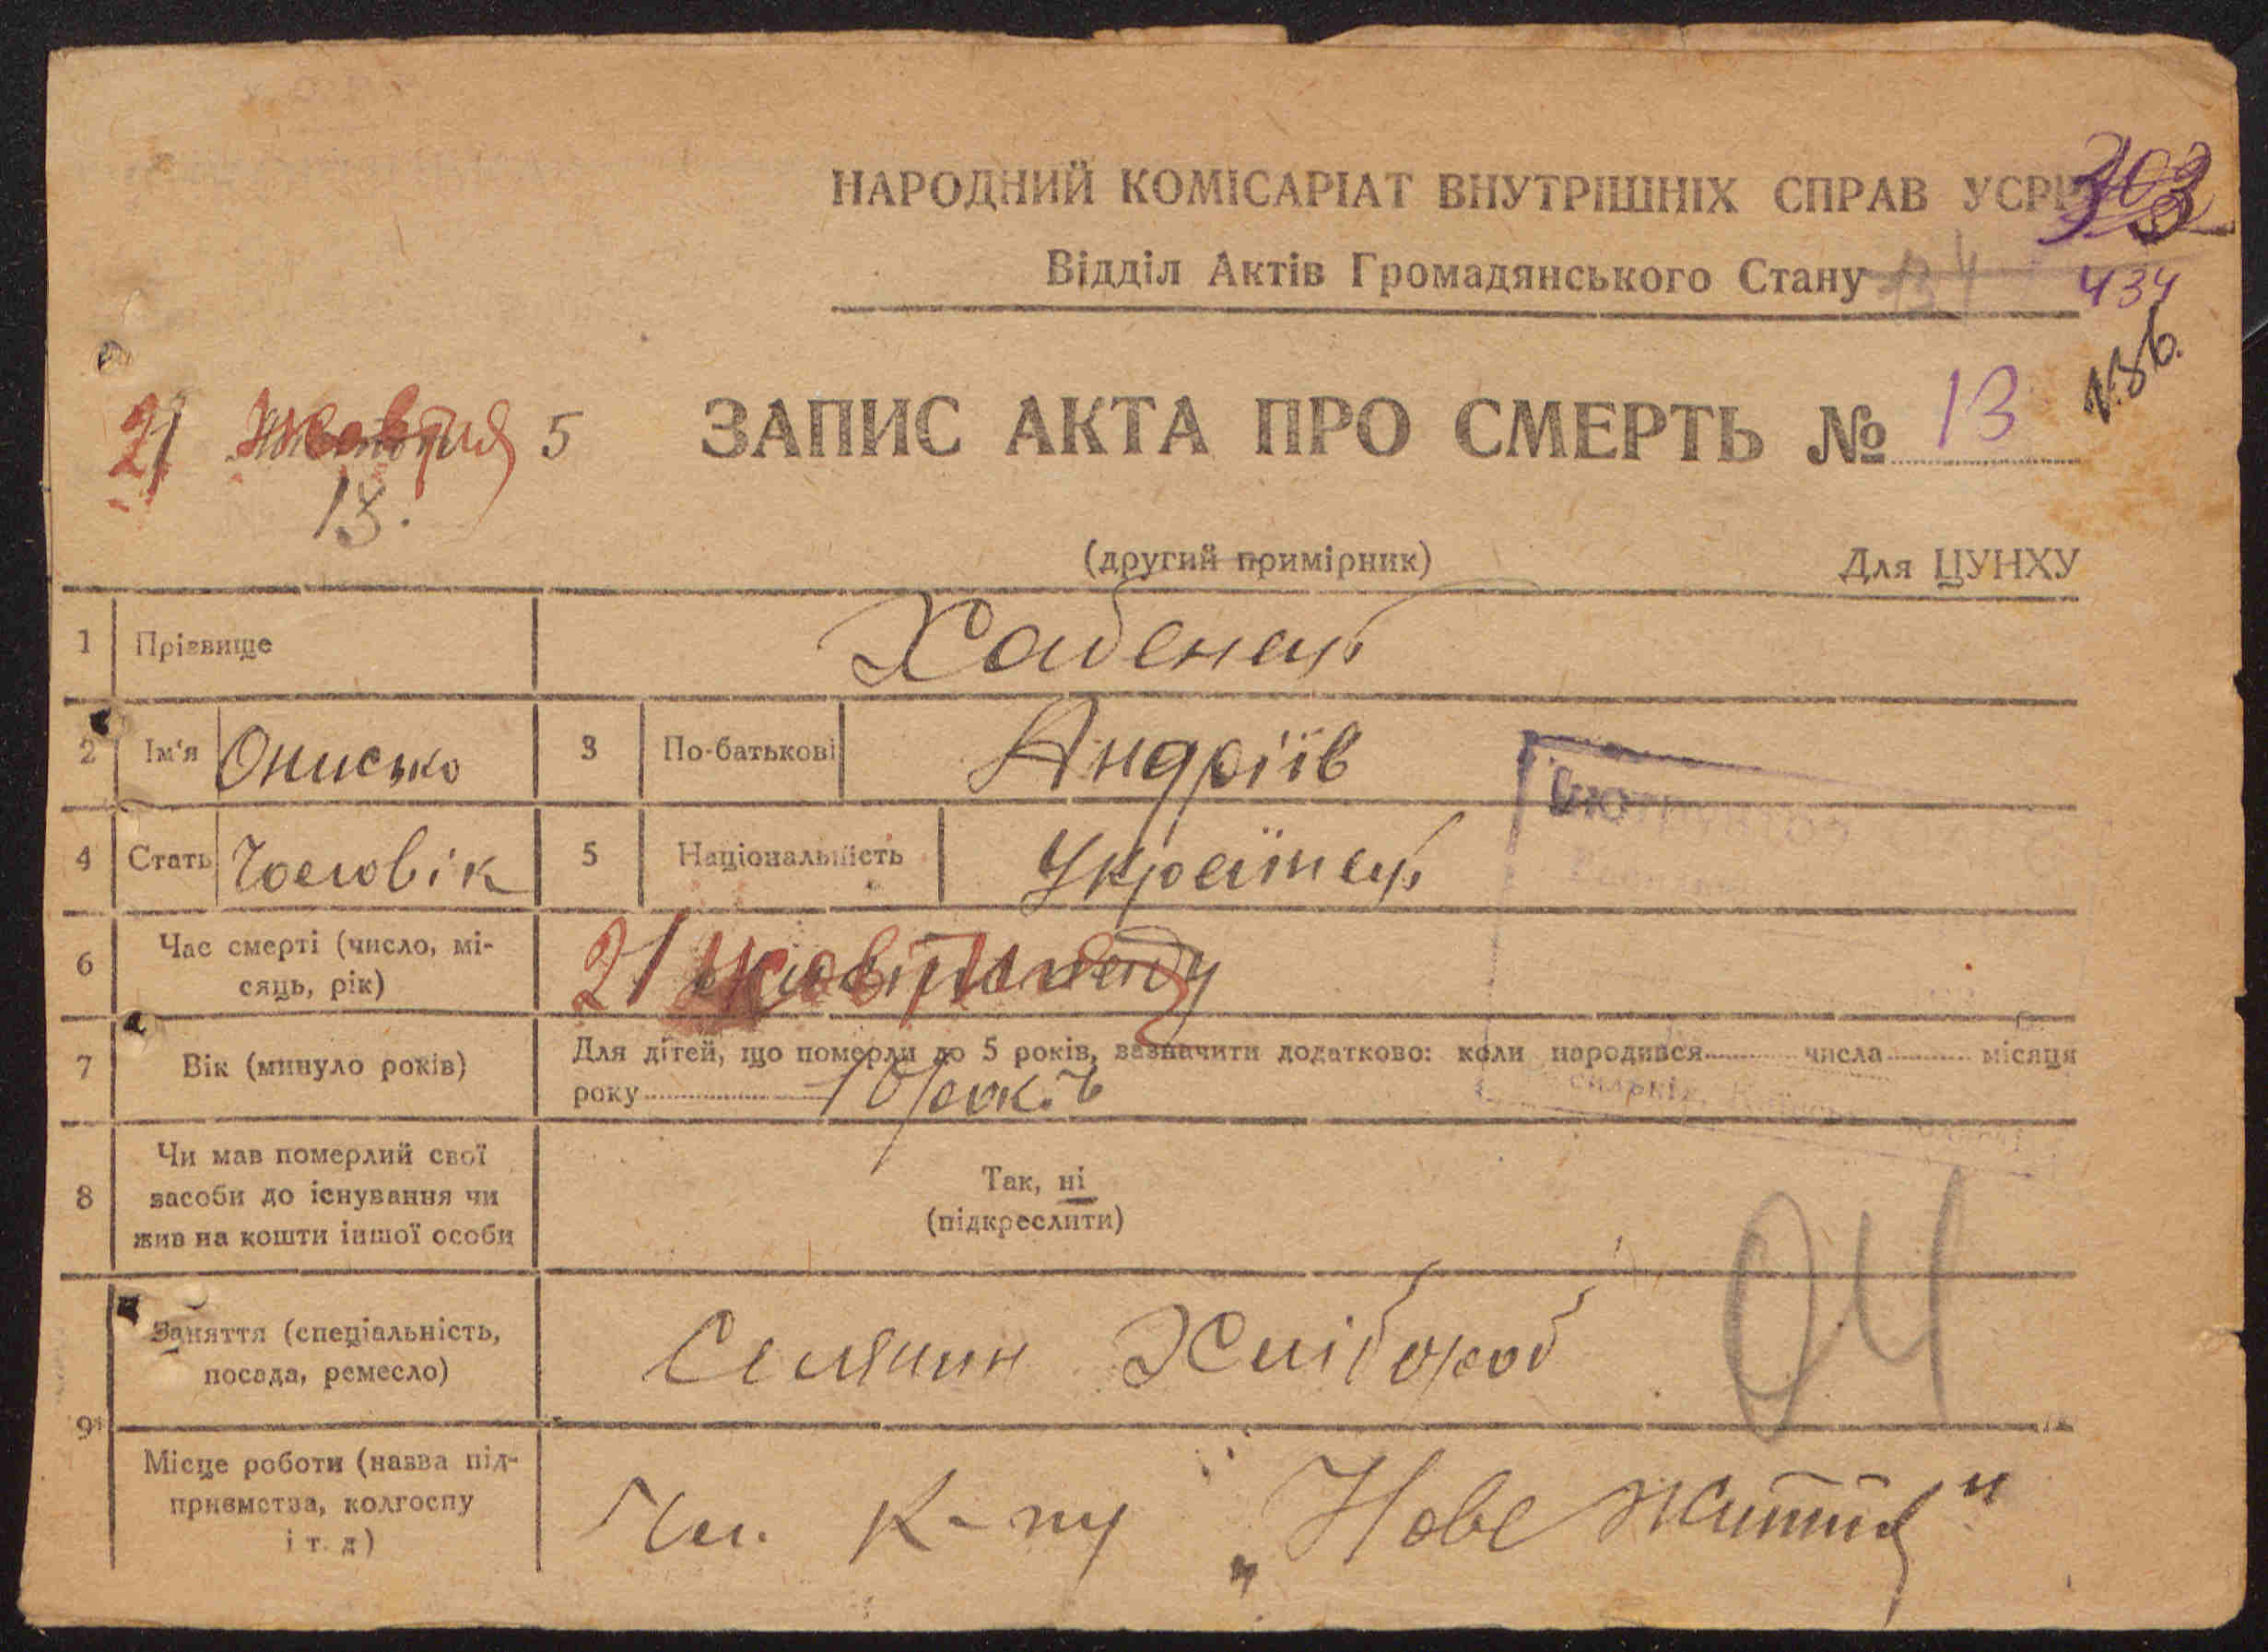 НАРОДНИЙ КОМІСАРІАТ ВНУТРІШНІХ СПРАВ УСРР
303
Відділ Актів Громадянського Стану
134
434
136.
21 Жовтня 5
13.
ЗАПИС АКТА ПРО СМЕРТЬ № 13
(другий примірник)
Для ЦУНХУ
1 Прізвище Хабенець
2 Ім'я Онисько 3 По-батькові Андріїв
4 Стать Чоловік 5 Національність Українець
6 Час смерті (число, мі-
сяць, рік)
21 Жовтня
7 Вік (минуло років)
Для дітей, що померли до 5 років, зазначити додатково: коли народився числа місяця
року 10 років
8 Чи мав померлий свої
засоби до існування чи
жив на кошти іншої особи
Так, ні
(підкреслити)
04
9 Заняття (спеціальність,
посада, ремесло)
Селянин Хлібороб
Місце роботи (назва під-
приємства, колгоспу
і т. д)
Чл. К-пу „Нове життя"